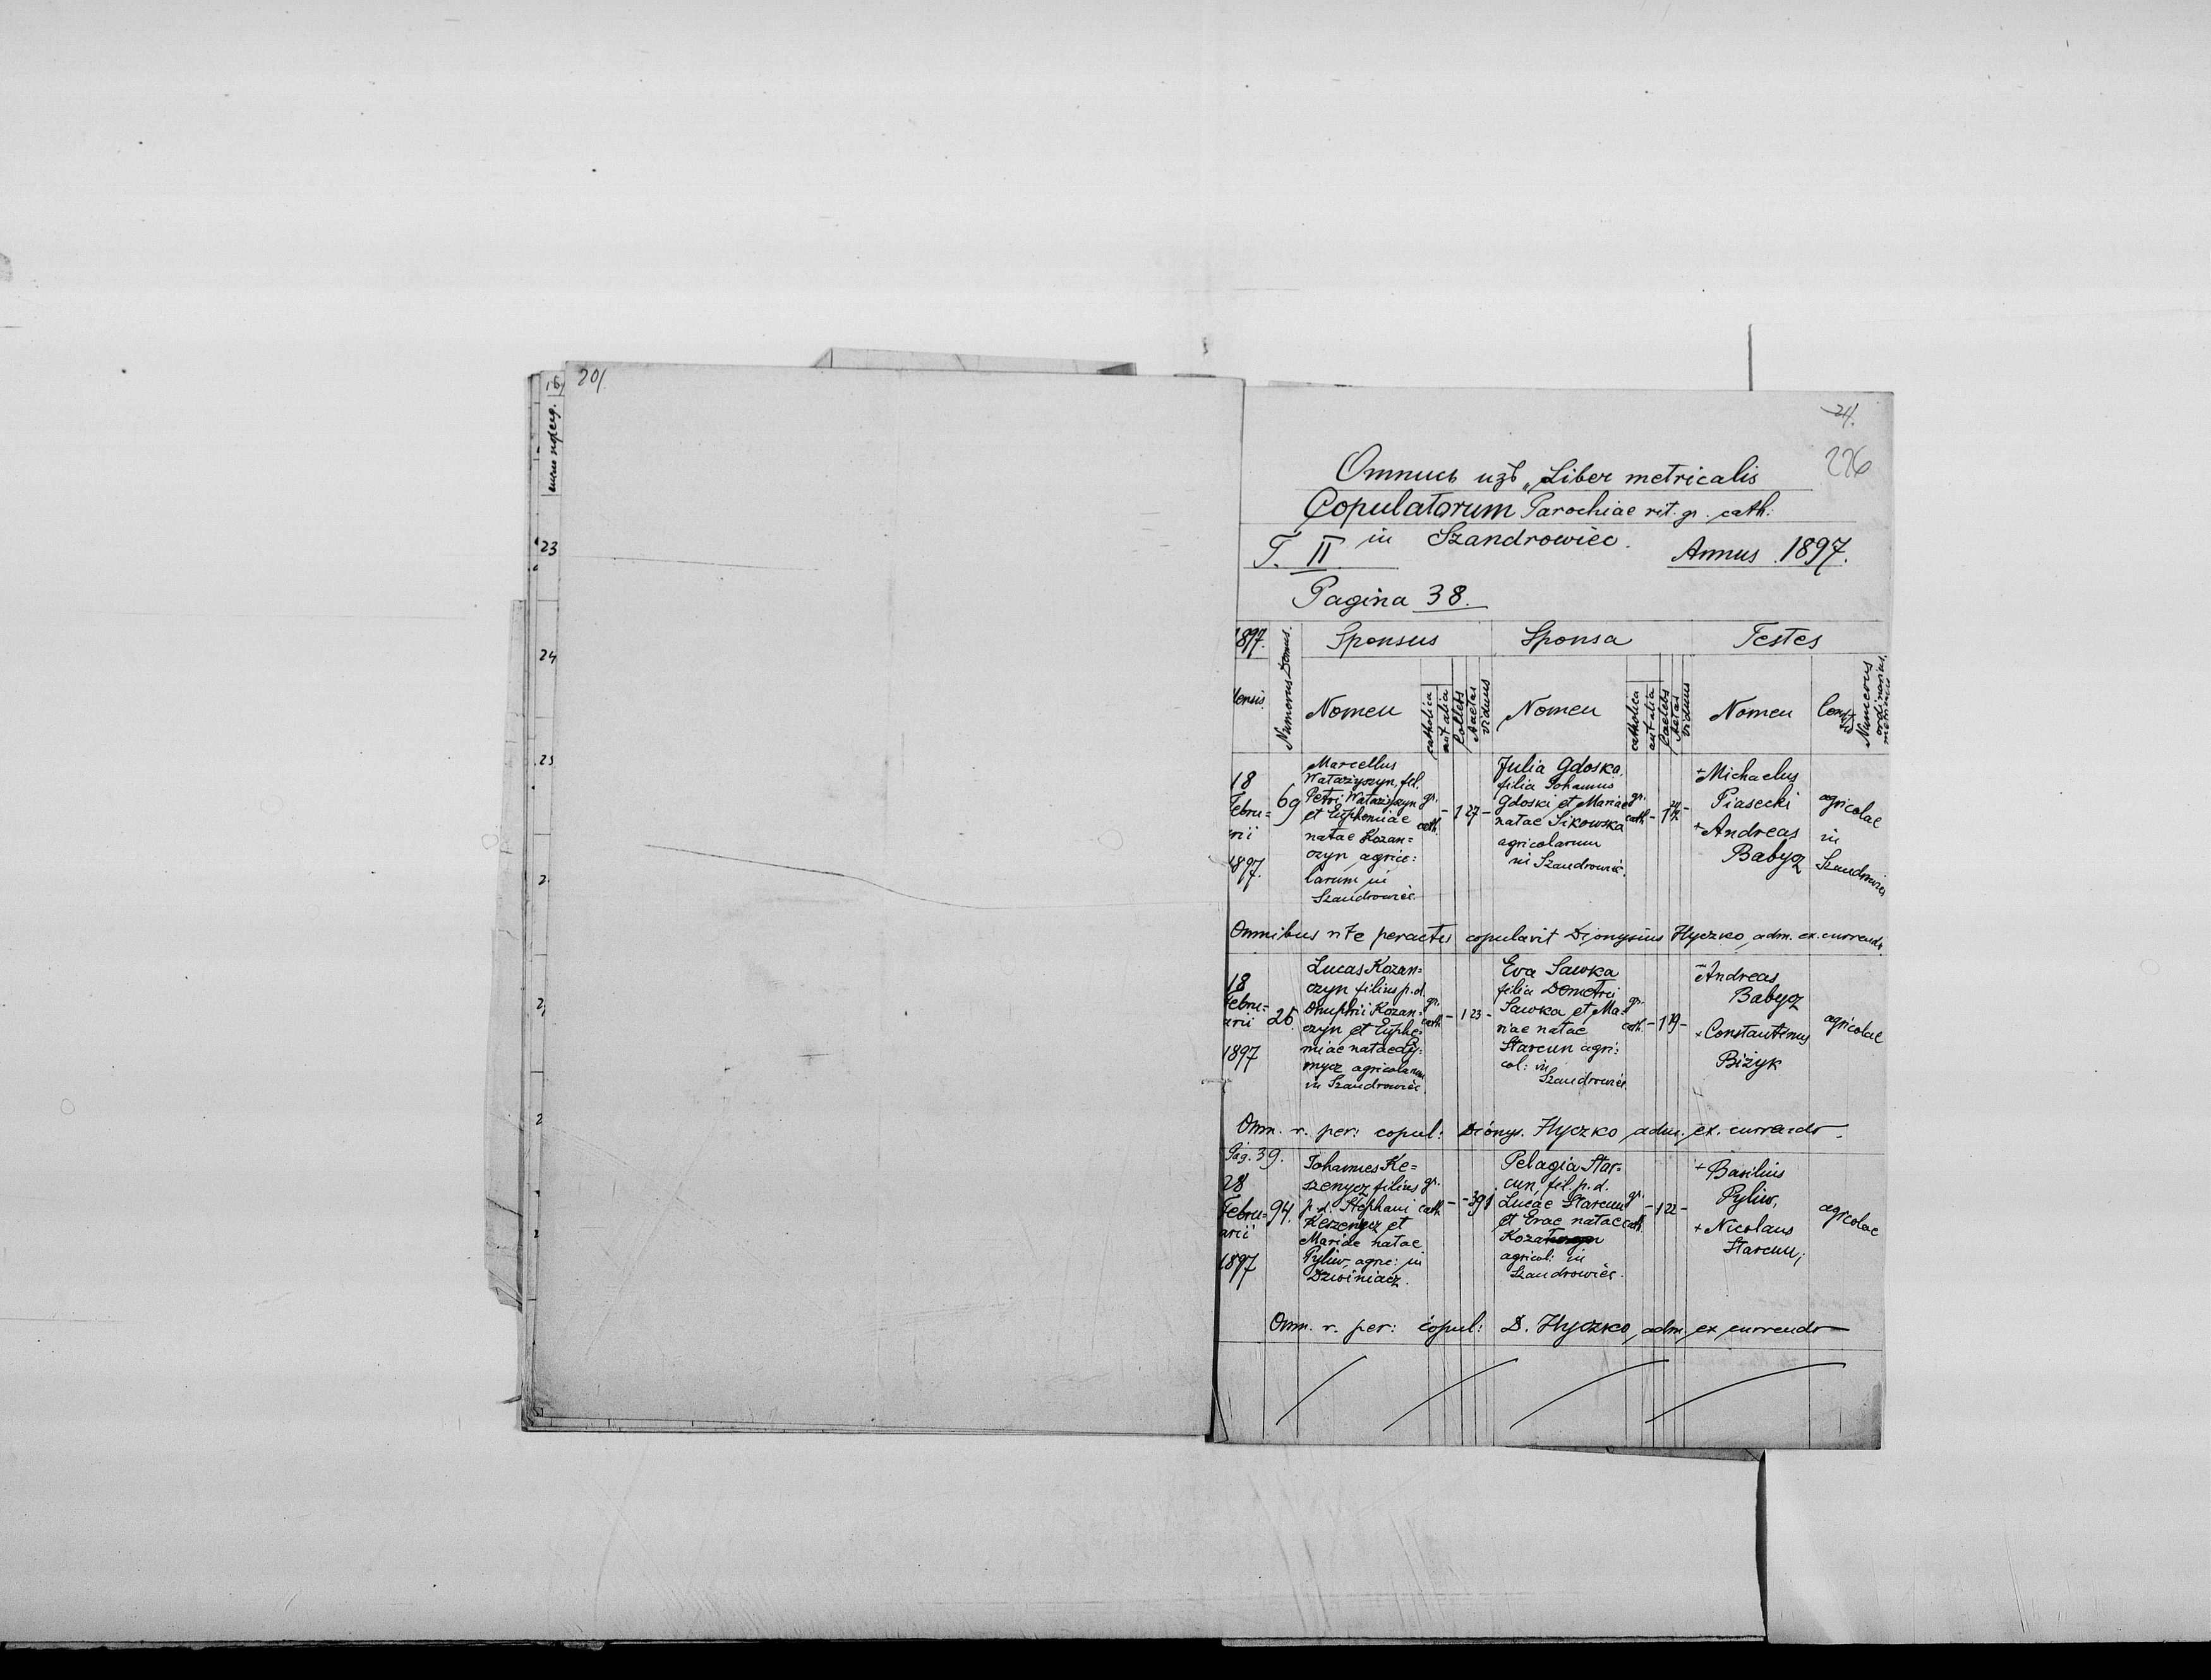 201.
21.
226
Отпись изъ „Liber metricalis
Copulatorum Parochiae rit. gr. cath:
in Szandrowiec.
T. II Annus 1897.
Pagina 38.
1897. Numerus Domus. Sponsus Sponsa Testes
Mensis Nomen catholica aut alia Coelebs Aetas viduus Nomen catholica aut alia Caelebs Aetas viduus Nomen Numerus ordinarius
18
Febru=
arii
1897.
69
Marcellus
Watażyszyn, fil.
Petri Watażyszyn
et Euphemiae
natae Kozan=
czyn agrico:
larum in
Szandrowiec.
gr.
cath. - 1 27 -
Julia Gdoska,
filia Johannis
Gdoski et Mariae
natae Sikowska
agricolarum
in Szandrowiec.
gr.
cath. - 1 24 -
+Michaelus
Piasecki
+Andreas
Babycz
agricolae
in
Szandrowiec
Omnibus rite peractis copulavit Dionysius Hyczko, adm. ex. currendo.
18
Febru=
arii
1897
26
Lucas Kozan=
czyn filius p.d.
Onuphrii Kozan=
czyn et Euphe=
miae natae Dy=
mycz agricolarum
in Szandrowiec.
gr.
cath. - 1 23 -
Eva Sawka
filia Demetrii
Sawka et Ma=
riae natae
Starcun agri:
col: in
Szandrowiec.
gr.
cath. - 1 19 -
Andreas
Babycz
+Constantinus
Biżyk
agricolae
Omn. r. per: copul: Dionys. Hyczko adm. ex. currendo.
Pag. 39.
28
Febru=
arii
1897
94.
Johannes Ke=
szenycz filius
p. d. Stephani
Keszenycz et
Mariae natae
Pyliw, agric: in
Dzwiniacz.
gr.
cath. - - 39 1
Pelagia Star=
cun, fil. p. d.
Lucae Starcun
et Evae natae
agricol: in
Szandrowiec.
gr.
cath. - 1 22 -
+ Basilius
Pyliw,
+ Nicolaus
Starcun;
agricolae
Omn. r. per: copul: D. Hyczko, adm, ex currendo